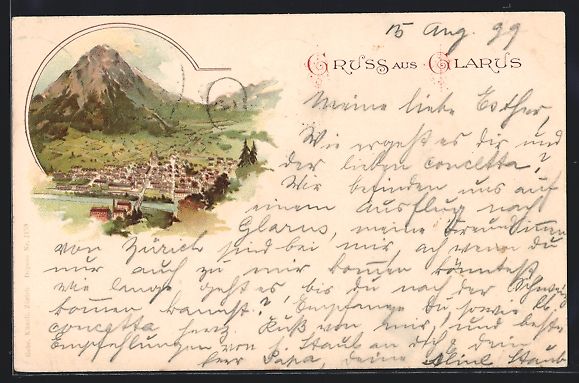 15 Aug. 99
GRUSS AUS GLARUS
Meine liebe Esther,
Wie ergeht es dir und
der lieben Concetta?
Wir befinden uns auf
einem Ausflug nach
Glarus, meine Freundinnen
von Zürich sind bei mir, ach wenn du
nur auch zu mir kommen könntest,
wie lange geht es bis du nach der Schweiz
kommen kannst? Empfange Du sowie lb.
Concetta herz. Kuß von mir, und beste
Empfehlungen von Staub an dich & dein
Papa, deine Aline Staub